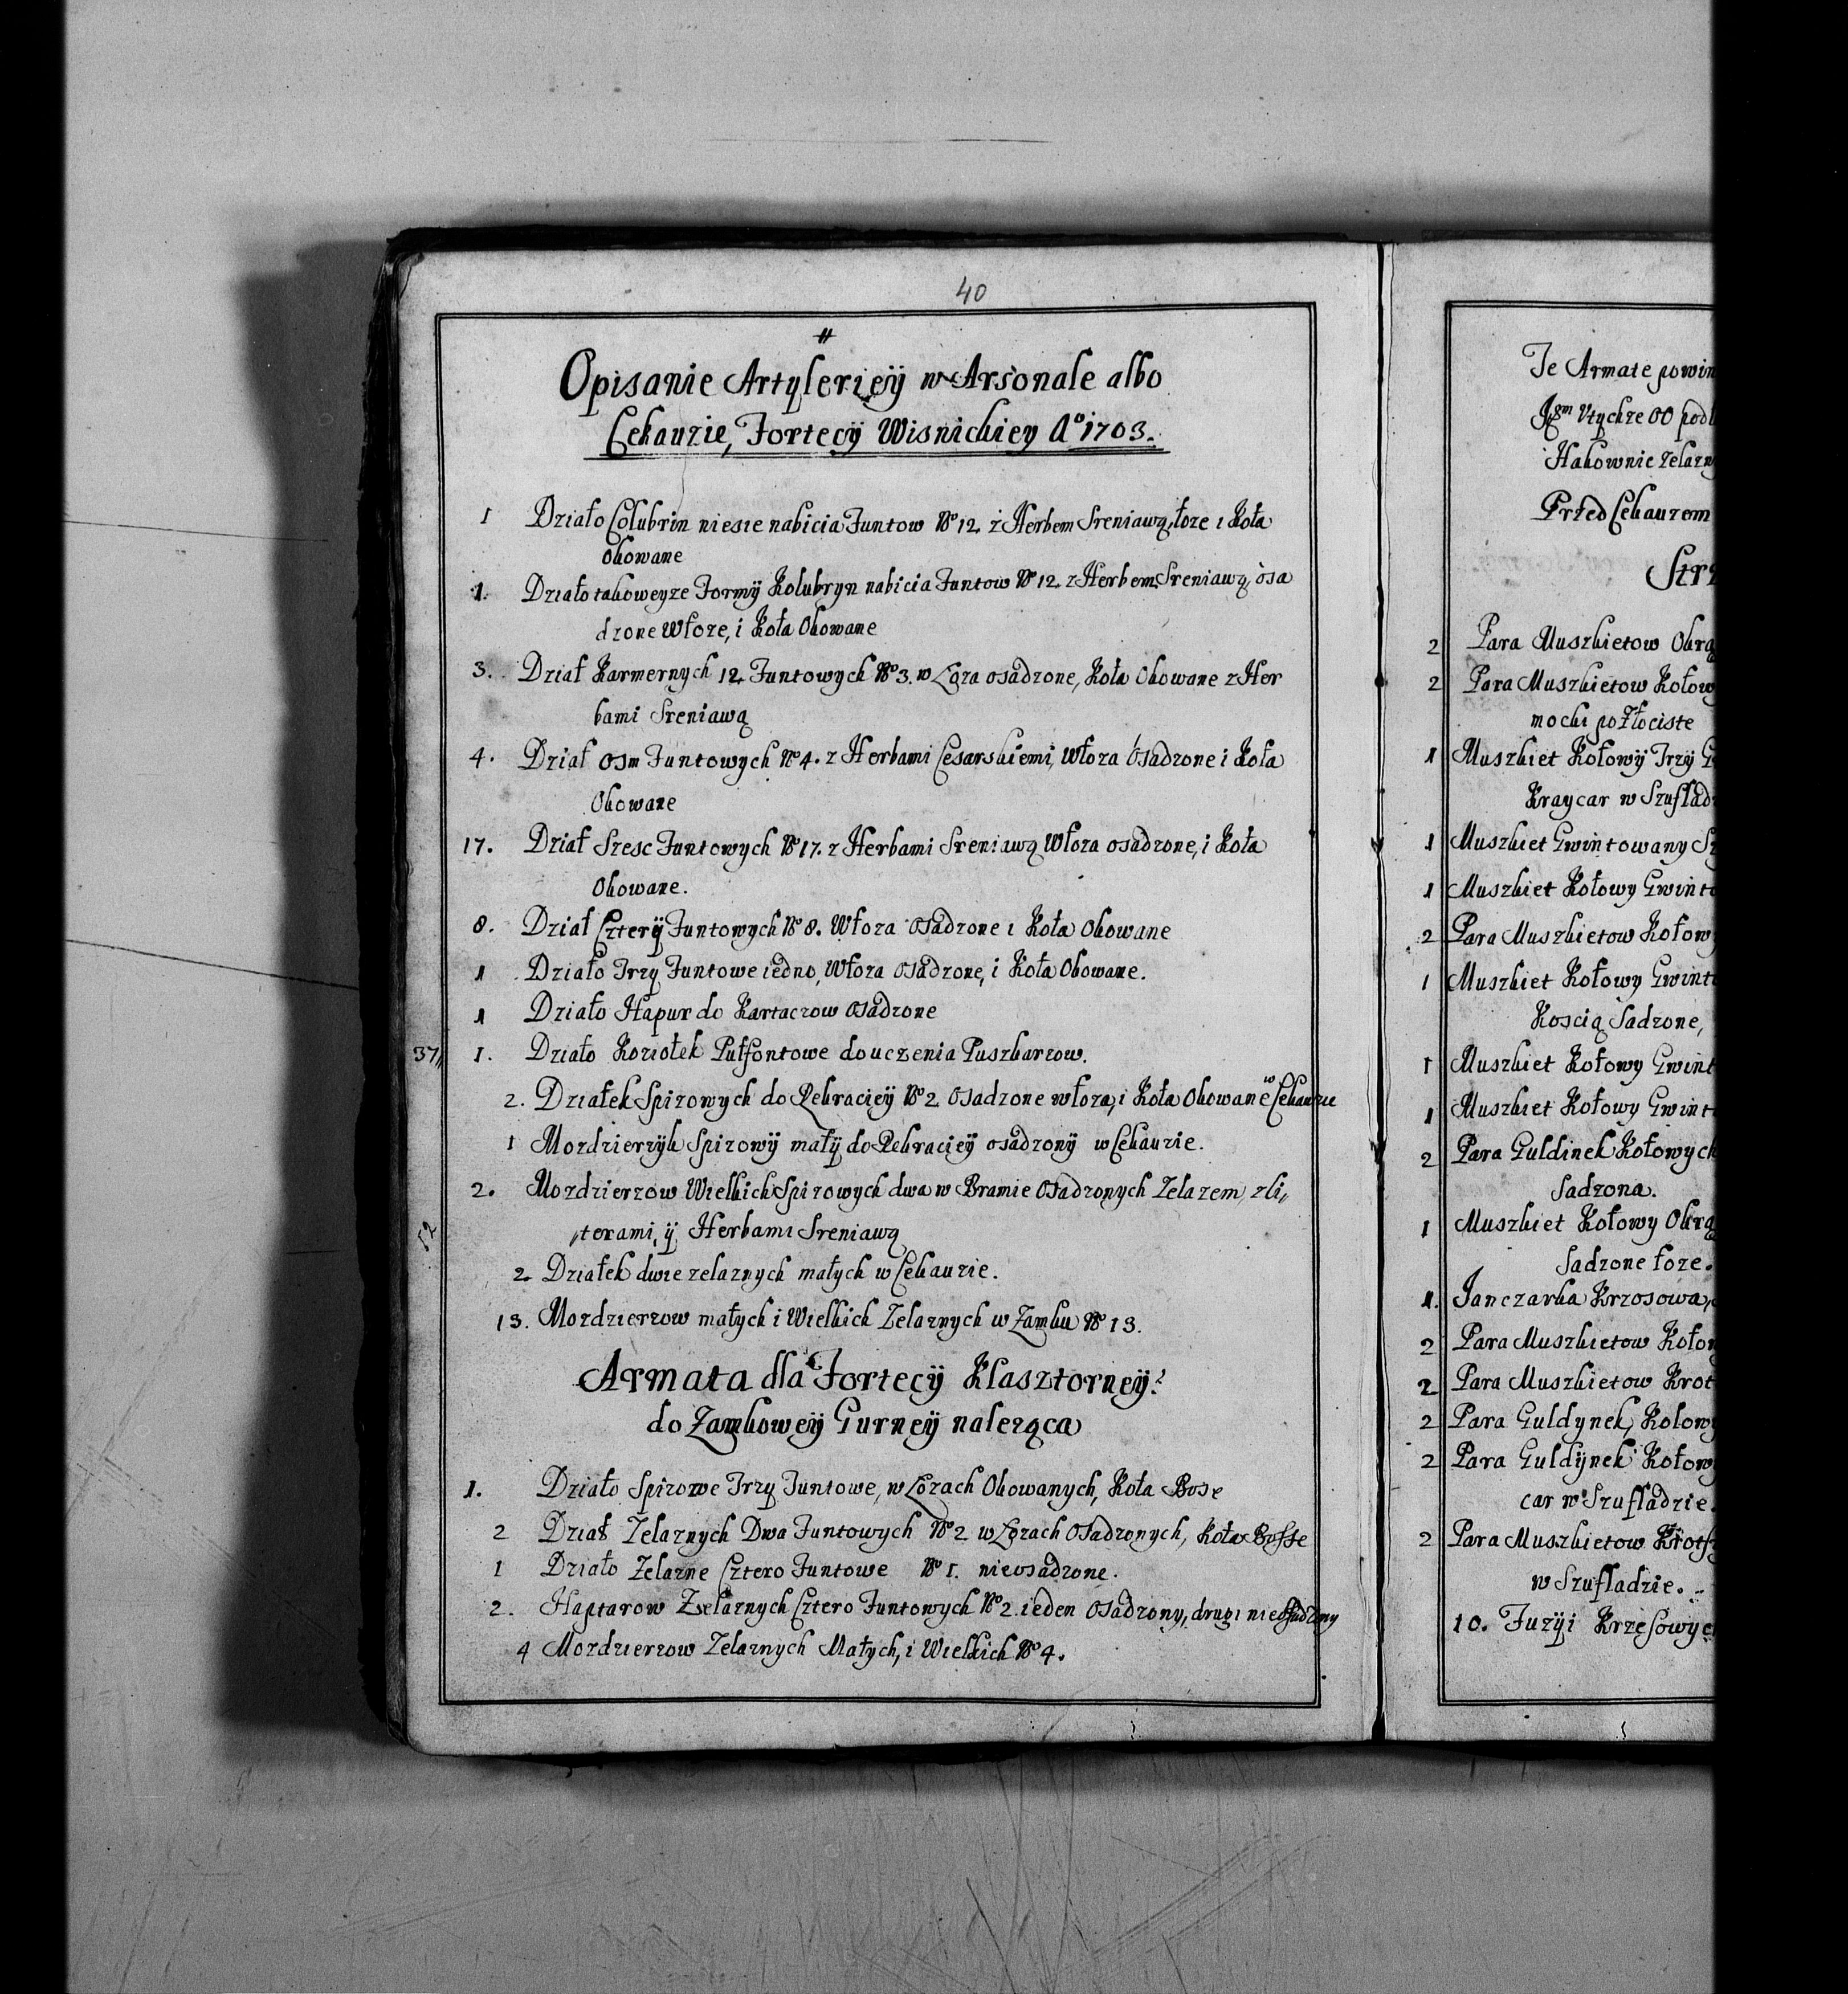 40
Opisanie Artyleriey w Arsonale albo
Cekauzie, Fortecÿ Wisnickiey Aº 1703.
1 Działo Colubrin niesie nabicia Funtow Nº 12. z Herbem Sreniawą, łoze i Koła
Okowane
1. Działo takoweyze Formÿ Kolubryn nabicia Funtow Nº 12. z Herbem Sreniawą, osa
dzone Włoze, i Koła Okowane
3. Dział Karmernych 12. Funtowych Nº 3. w Loza osadzone, Koła Okowane z Her
bami Sreniawą
4. Dział osm Funtowych Nº 4. z Herbami Cesarskiemi, Włoza Osadzone i Koła
Okowane
17. Dział Szesc Funtowych Nº 17. z Herbami Sreniawą Włoza osadzone, i Koła
Okowane.
8. Dział Czterÿ Funtowych Nº 8. Włoza osadzone i Koła Okowane
1 Działo Trzy Funtowe iedno, Włoza osadzone, i Koła Okowane.
1 Działo Hapur do Kartaczow osadzone
37// 1. Działo Koziołek Pułfontowe do uczenia Puszkarzow.
2. Działek Spizowych do Rekraciey Nº 2 osadzone włoza, i Koła Okowane w Cekauzie
1 Mozdzierzyk Spizowÿ małÿ do Rekraciey osadzonÿ w Cekauzie.
2. Mozdzierzow Wielkich Spizowych dwa w Bramie Osadzonych Zelazem, z li//
terami, ÿ Herbami Sreniawą
52
2. Działek dwie zelaznych małych w Cekauzie.
13. Mozdzierzow małych i Wielkich Zelaznych w Zamku Nº 13.
Armata dla Fortecÿ Klasztorneÿ
do Zamkoweÿ Gurneÿ naleząca
1. Działo Spizowe Trzy Funtowe, w Lozach Okowanych, Koła Bose
2 Dział Zelaznych Dwa Funtowych Nº 2 w Lozach Osadzonych, Koła Bosse
1 Działo Zelazne Cztero Funtowe Nº 1. nieosadzone.
2. Haptarow Zelaznych Cztero Funtowych Nº 2. ieden Osadzony, drugi nieosadzony
4 Mozdzierzow Zelaznych Małych, i Wielkich Nº 4.
Te Armate powin
Vtychze 00 podł
Hakownic zelazn
Przed Cekauzem
Strz
2 Para Muszkietow Okrą
2 Para Muszkietow Kołow
mocki pozłociste
1 Muszkiet Kołowÿ Trzÿ G
Kraycar w Szuflad
1 Muszkiet Gwintowany Sz
1 Muszkiet Kołowy Gwint
2 Para Muszkietow Kołow
1 Muszkiet Kołowy Gwint
Koscią Sadzone,
1 Muszkiet Kołowy Gwint
1 Muszkiet Kołowy Gwint
2 Para Guldinek Kołowych
Sadzona.
1 Muszkiet Kołowy Okrą
Sadzone łoze.
1. Janczarka Krzosowa,
2 Para Muszkietow Kołow
2 Para Muszkietow Krot
2 Para Guldynek, Kołow
2 Para Guldÿnek Kołow
car w Szufladzie.
2 Para Muszkietow Krots
w Szufladzie.
10. Fuzÿi Krzesowyc